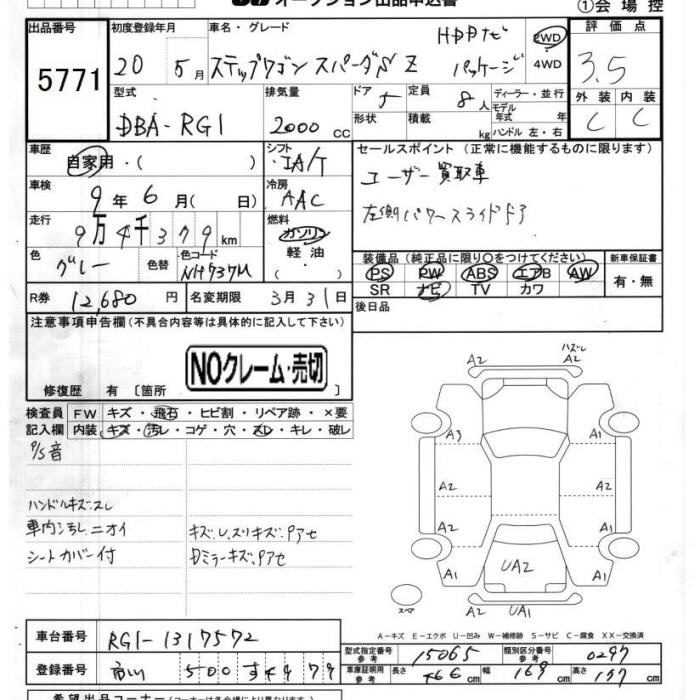 オークション出品申込書
①会場控
出品番号
5771
初度登録年月
20 5月
車名・グレード
ステップワゴン スパーダS Z
HDDナビ
パッケージ
2WD
・
4WD
評価点
3.5
外装 内装
C C
型式
DBA-RG1
排気量
2000 cc
ドア 5
形状
定員 8人
積載 kg
ディーラー・並行
モデル年式 年式
ハンドル 左・右
車歴
自家用・( )
シフト
IA/T
セールスポイント (正常に機能するものに限ります)
ユーザー買取車
左側パワースライドドア
車検
9年6月( 日)
冷房
AAC
走行
9万4千379km
燃料
ガソリン
軽油
色
グレー
色替
色コード
NH737M
装備品(純正品に限り○をつけてください)
PS PW ABS エアB AW
SR ナビ TV カワ
新車保証書
有・無
R券 12,680円
名変期限 3月31日
後日品
注意事項申告欄(不具合内容等は具体的に記入して下さい)
NOクレーム・売切
修復歴 有 〔箇所 〕
検査員
記入欄
FW キズ・飛石・ヒビ割・リペア跡・×要
内装 キズ・汚レ・コゲ・穴・スレ・キレ・破レ
P/S音
ハンドルキズ.スレ
車内汚レ ニオイ
シートカバー付
キズ.U.スリキズ.Pアセ
Dミラーキズ.Pアセ
ハズレ
A2 A2
A3 A1
A2 A2
A2 A2
A1 UA2 A1
スペア
UA1
A-キズ E-エクボ U-凹み W-補修跡 S-サビ C-腐食 XX-交換済
車台番号
RG1-1317572
登録番号
市川 500 す 4979
型式指定番号
参考
15065
類別区分番号
参考
0297
車庫証明用
参考
長さ 466cm
幅 169cm
高さ 177cm
希望出品コーナー(コーナーは各会場により異なります)